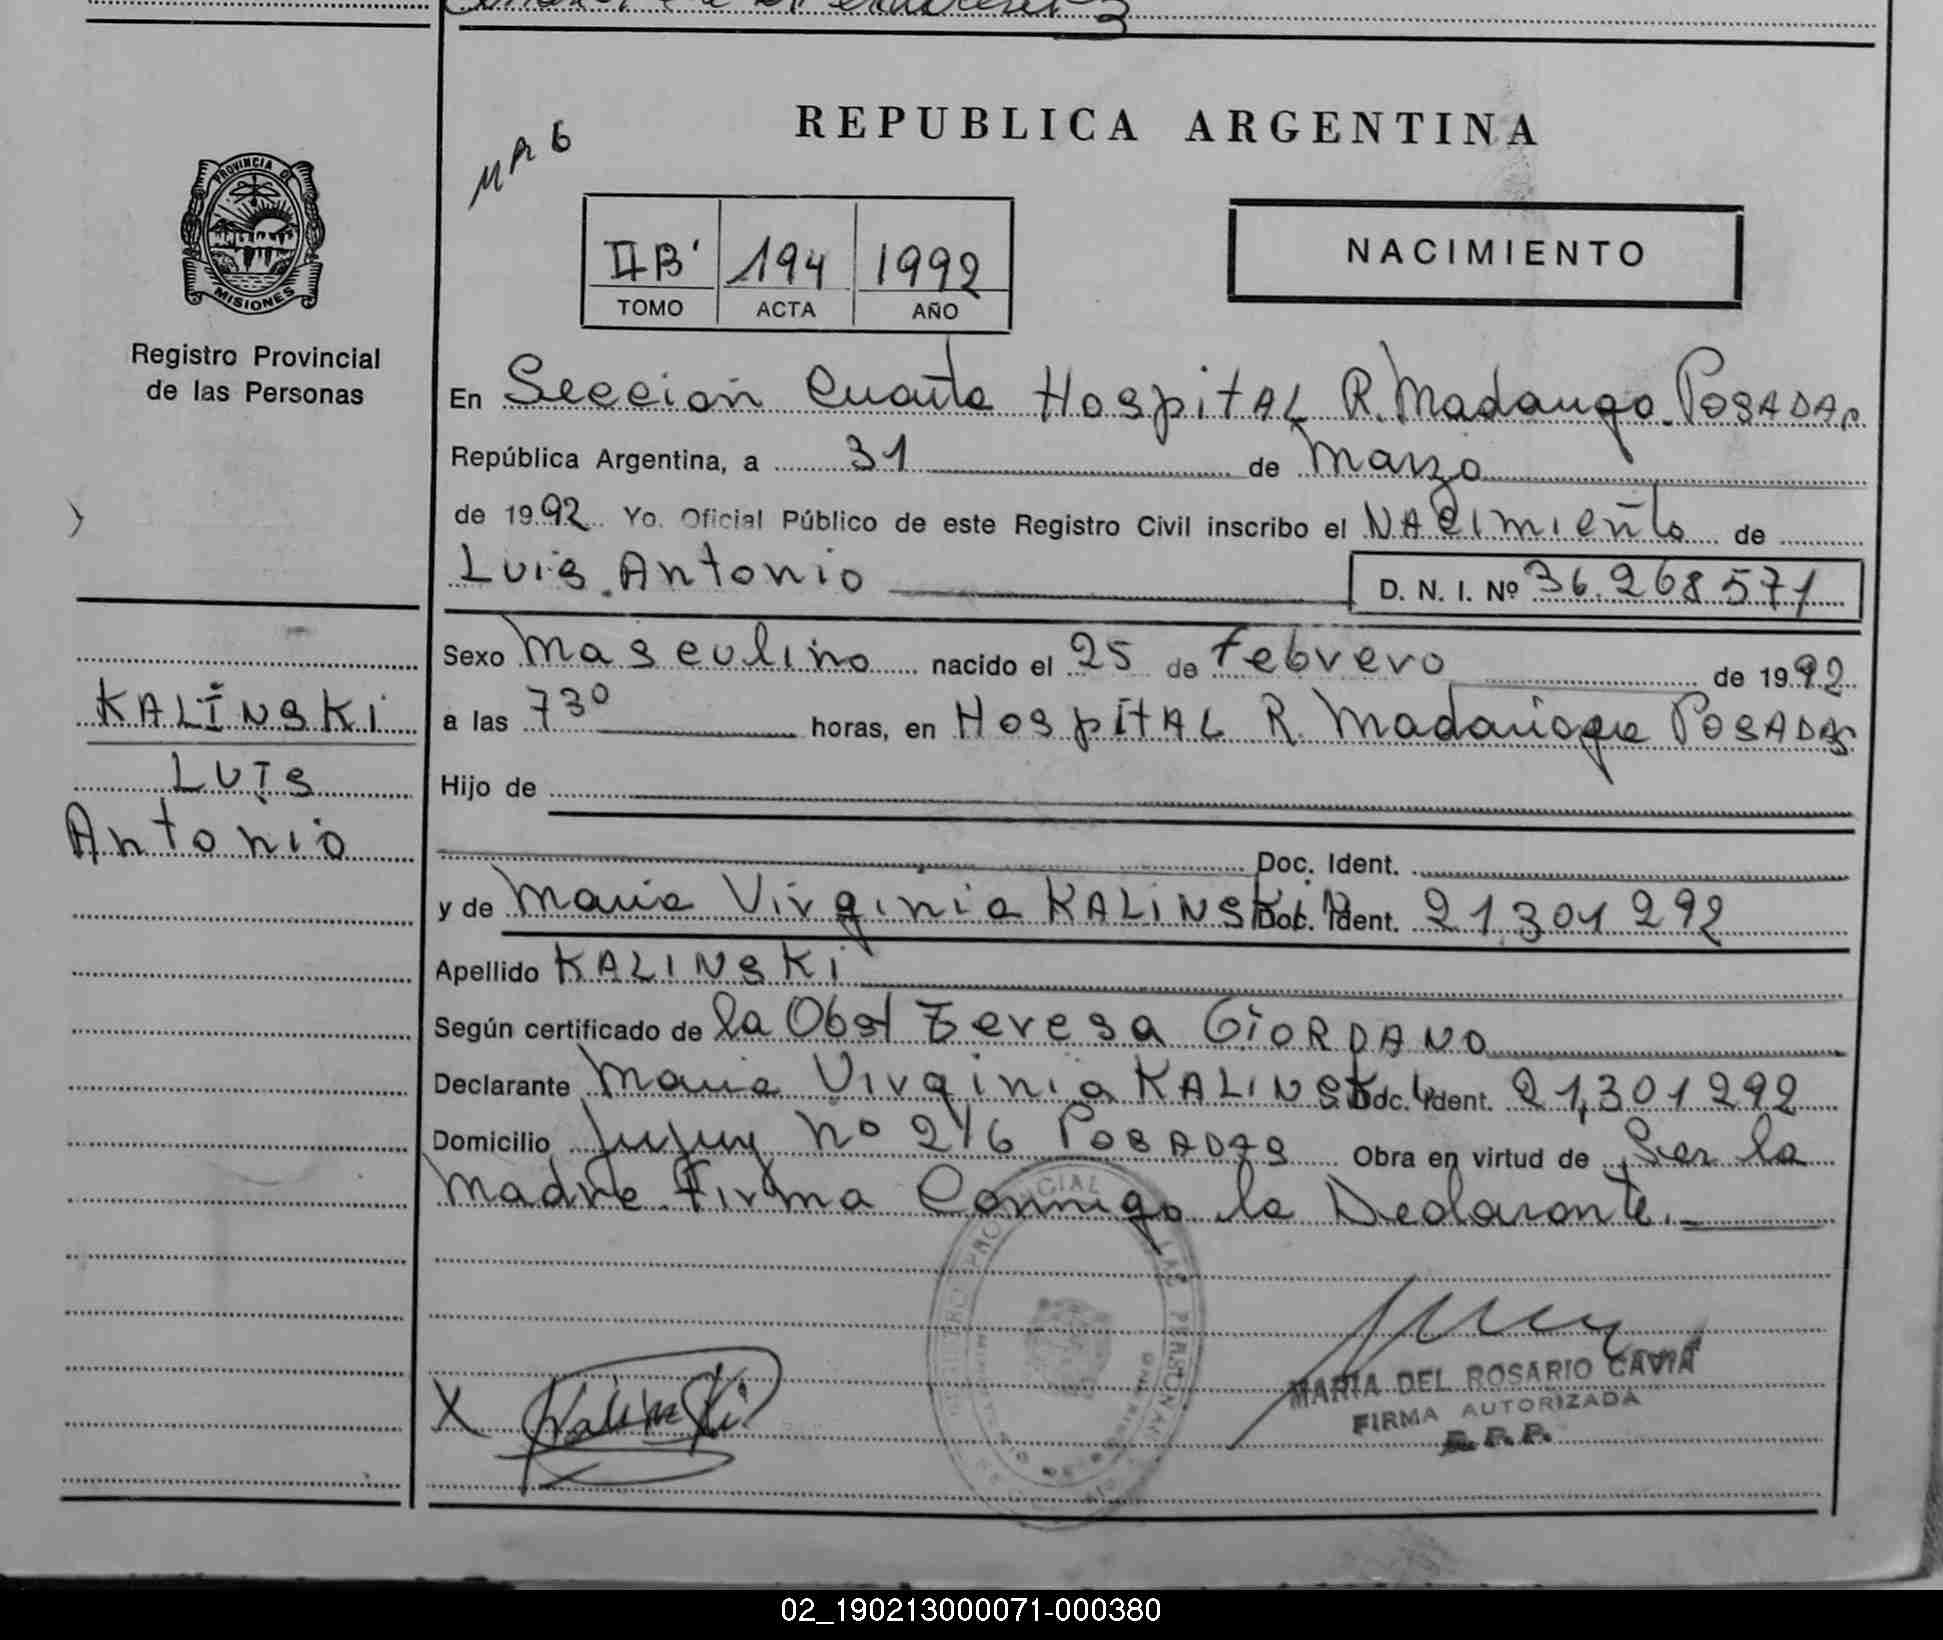 REPUBLICA ARGENTINA
PROVINCIA DE
MISIONES
Registro Provincial
de las Personas
II B' 194 1992
TOMO ACTA AÑO
NACIMIENTO
En Sección Cuarta Hospital R. Madariaga. POSADAS
República Argentina, a 31 de Marzo
de 1992. Yo. Oficial Público de este Registro Civil inscribo el NACimiento de
Luis Antonio D. N. I. Nº 36.268571
Sexo Masculino nacido el 25 de Febrero de 1992
a las 7 30 horas, en HospitAL R. Madariaga POSADAS
Hijo de
Doc. Ident.
y de Maria Virginia KALINSKI Doc. Ident. 21,301292
Apellido KALINSKI
Según certificado de la Obst Teresa GIORDANO
Declarante Maria Virginia KALINSKI Doc. Ident. 21,301292
Domicilio Jujuy nº 246 POSADAS Obra en virtud de Ser la
Madre. Firma Conmigo la Declarante.
KALINSKI
LUIS
Antonio
X Kalinski
MARIA DEL ROSARIO CAVIA
FIRMA AUTORIZADA
R. P. P.
02_190213000071-000380